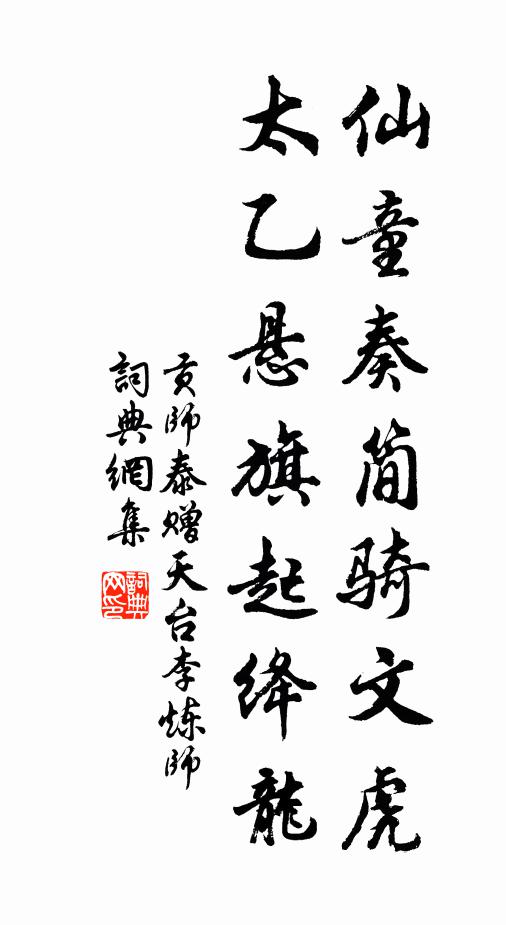 仙童奏简骑文虎
太乙悬旗起绛龍
贡师泰赠天台李炼师
詞典網集
詞典网印